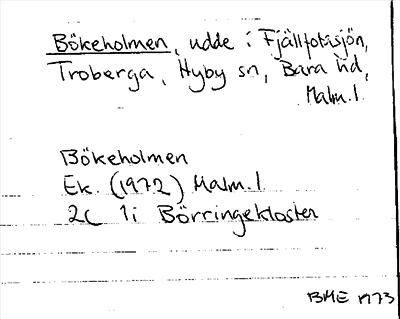 Bökeholmen, udde i Fjällfotasjön,
Troberga, Hyby sn, Bara hd,
Malm.l.
Bökeholmen
Ek. (1972) Malm.l
2C 1i Börringekloster
BME 1973